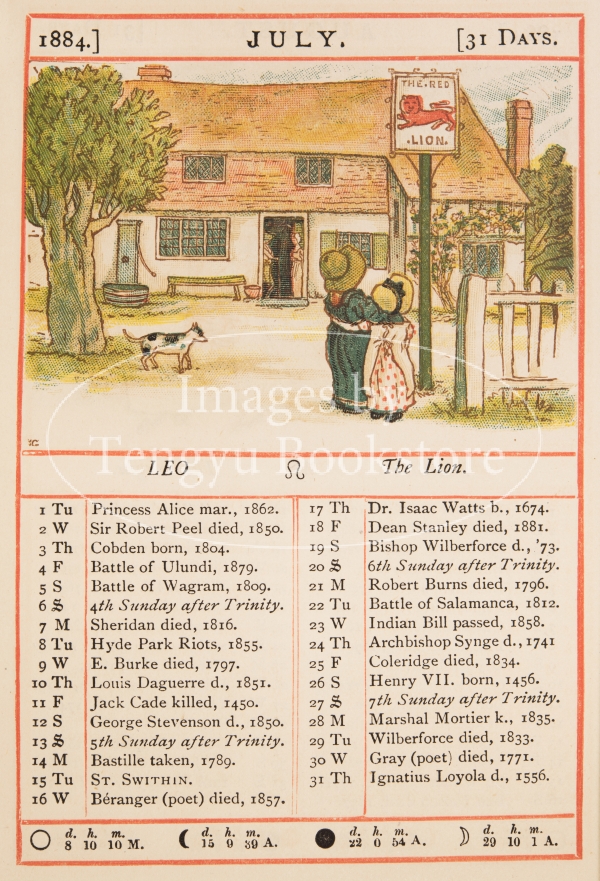 1884.] JULY. [31 DAYS.
THE·RED
.LION.
Images by
Tengyu Bookstore
KG
LEO ♌ The Lion.
1 Tu Princess Alice mar., 1862.
2 W Sir Robert Peel died, 1850.
3 Th Cobden born, 1804.
4 F Battle of Ulundi, 1879.
5 S Battle of Wagram, 1809.
6 S 4th Sunday after Trinity.
7 M Sheridan died, 1816.
8 Tu Hyde Park Riots, 1855.
9 W E. Burke died, 1797.
10 Th Louis Daguerre d., 1851.
11 F Jack Cade killed, 1450.
12 S George Stevenson d., 1850.
13 S 5th Sunday after Trinity.
14 M Bastille taken, 1789.
15 Tu ST. SWITHIN.
16 W Béranger (poet) died, 1857.
17 Th Dr. Isaac Watts b., 1674.
18 F Dean Stanley died, 1881.
19 S Bishop Wilberforce d., '73.
20 S 6th Sunday after Trinity.
21 M Robert Burns died, 1796.
22 Tu Battle of Salamanca, 1812.
23 W Indian Bill passed, 1858.
24 Th Archbishop Synge d., 1741
25 F Coleridge died, 1834.
26 S Henry VII. born, 1456.
27 S 7th Sunday after Trinity.
28 M Marshal Mortier k., 1835.
29 Tu Wilberforce died, 1833.
30 W Gray (poet) died, 1771.
31 Th Ignatius Loyola d., 1556.
d. h. m. d. h. m. d. h. m. d. h. m.
8 10 10 M. 15 9 39 A. 22 0 54 A. 29 10 1 A.